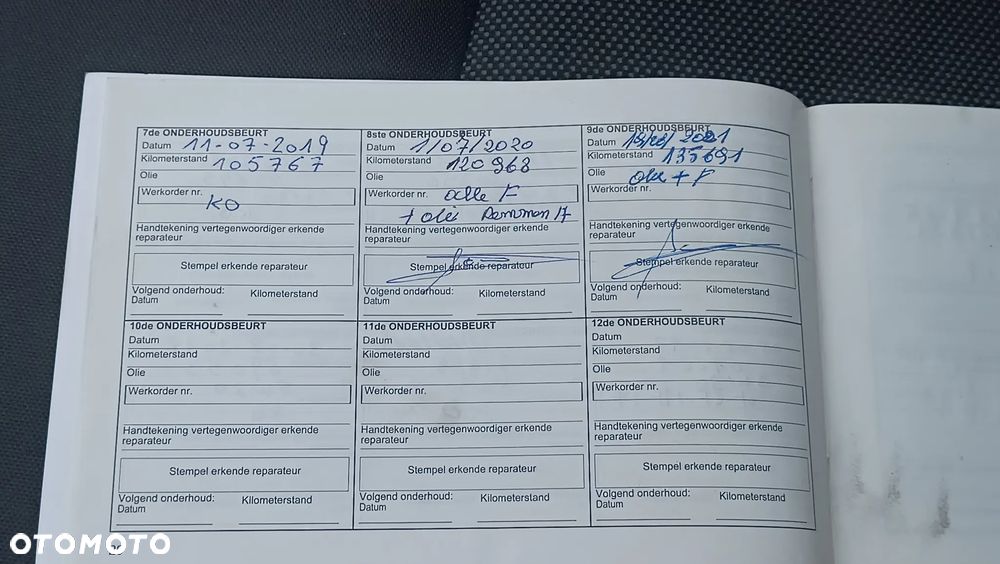 7de ONDERHOUDSBEURT
Datum 11-07-2019
Kilometerstand 105767
Olie
Werkorder nr.
KO
Handtekening vertegenwoordiger erkende
reparateur
Stempel erkende reparateur
Volgend onderhoud:
Datum Kilometerstand
8ste ONDERHOUDSBEURT
Datum 1/07/2020
Kilometerstand 120968
Olie
Werkorder nr. olie F
+ olie
Handtekening vertegenwoordiger erkende
reparateur
Stempel erkende reparateur
Volgend onderhoud:
Datum Kilometerstand
9de ONDERHOUDSBEURT
Datum 2021
Kilometerstand 135691
Olie olie + F
Werkorder nr.
Handtekening vertegenwoordiger erkende
reparateur
Stempel erkende reparateur
Volgend onderhoud:
Datum Kilometerstand
10de ONDERHOUDSBEURT
Datum
Kilometerstand
Olie
Werkorder nr.
Handtekening vertegenwoordiger erkende
reparateur
Stempel erkende reparateur
Volgend onderhoud:
Datum Kilometerstand
11de ONDERHOUDSBEURT
Datum
Kilometerstand
Olie
Werkorder nr.
Handtekening vertegenwoordiger erkende
reparateur
Stempel erkende reparateur
Volgend onderhoud:
Datum Kilometerstand
12de ONDERHOUDSBEURT
Datum
Kilometerstand
Olie
Werkorder nr.
Handtekening vertegenwoordiger erkende
reparateur
Stempel erkende reparateur
Volgend onderhoud:
Datum Kilometerstand
OTOMOTO